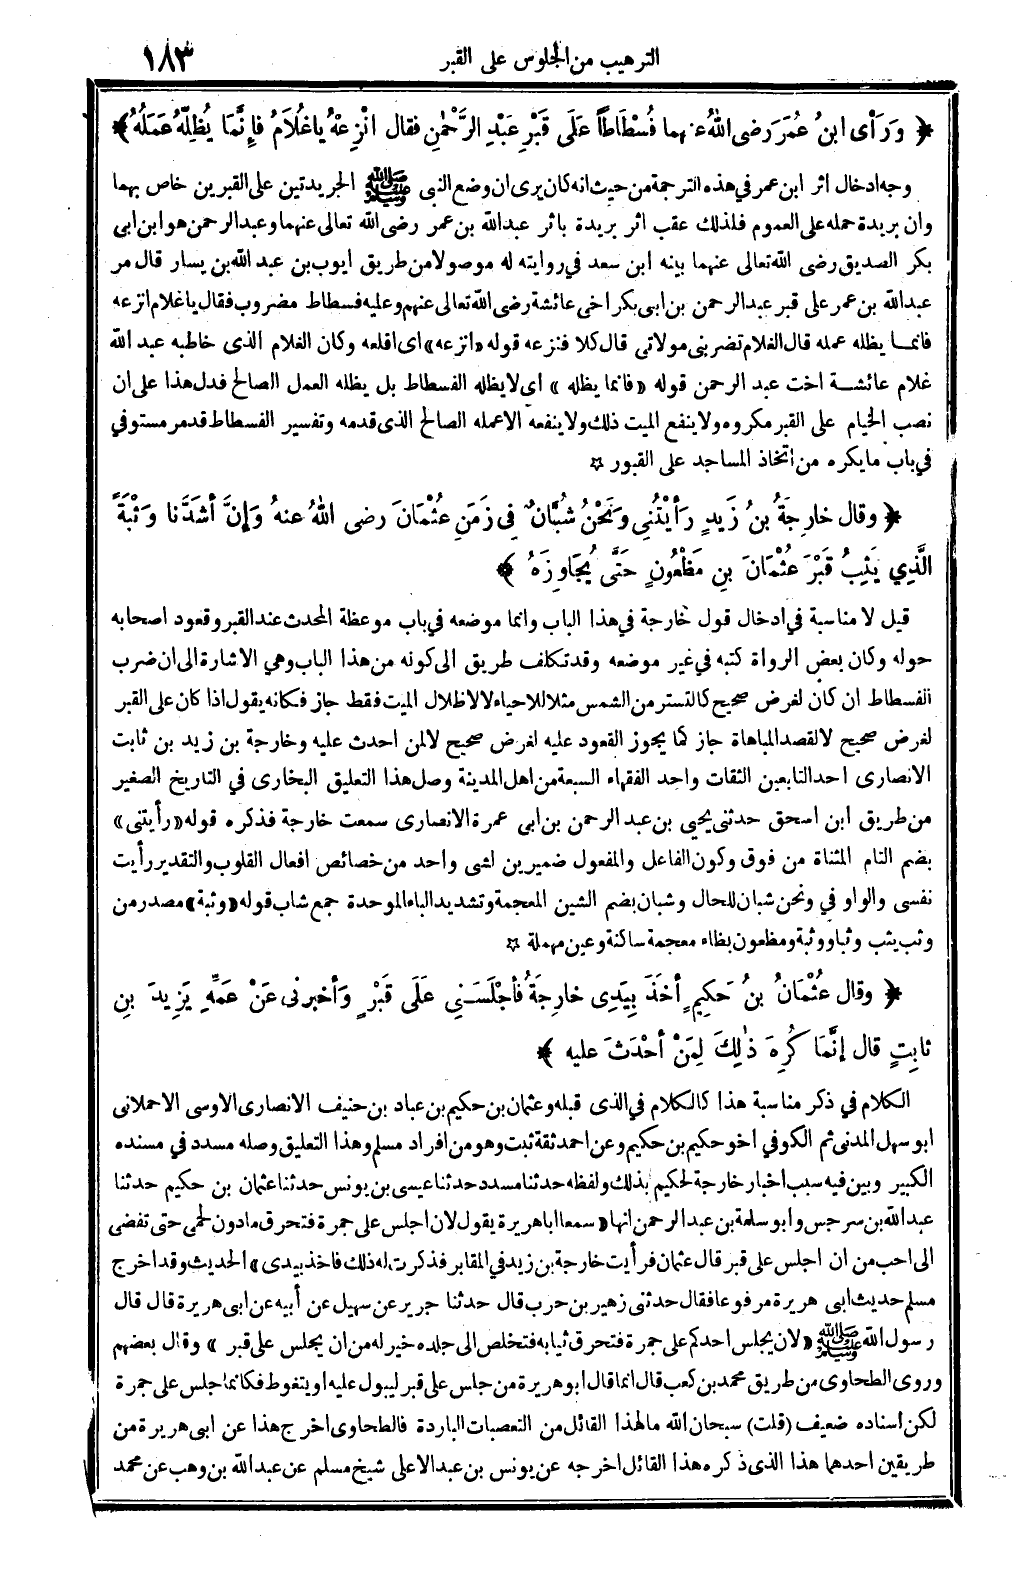 الترهيب من الجلوس على القبر ١٨٣
﴿ وَرَأى ابنُ عُمَرَ رضى اللهُ عنهما فُسْطَاطًا عَلَى قَبْرِ عَبْدِ الرَّحْمٰنِ فقال انْزِعْهُ ياغُلَامُ فإِنَّمَا يُظِلُّهُ عَمَلُهُ ﴾
وجه ادخال اثر ابن عمر في هذه الترجمة من حيث انه كان يرى ان وضع النبى ﷺ الجريدتين على القبرين خاص بهما
وان بريدة حمله على العموم فلذلك عقب اثر بريدة باثر عبدالله بن عمر رضى الله تعالى عنهما وعبدالرحمن هو ابن ابى
بكر الصديق رضى الله تعالى عنهما بينه ابن سعد في روايته له موصولا من طريق ايوب بن عبد الله بن يسار قال مر
عبدالله بن عمر على قبر عبدالرحمن بن ابى بكر اخى عائشة رضى الله تعالى عنهم وعليه فسطاط مضروب فقال ياغلام انزعه
فانما يظله عمله قال الغلام تضربنى مولاتى قال كلا فنزعه قوله «انزعه» اى اقلعه وكان الغلام الذى خاطبه عبد الله
غلام عائشة اخت عبد الرحمن قوله «فانما يظله» اى لا يظله الفسطاط بل يظله العمل الصالح فدل هذا على ان
نصب الخيام على القبر مكروه ولا ينفع الميت ذلك ولا ينفعه الا عمله الصالح الذى قدمه وتفسير الفسطاط قد مر مستوفي
في باب ما يكره من اتخاذ المساجد على القبور ☆
﴿ وقال خارِجَةُ بنُ زَيدٍ رَأيْتُنِى وَنَحْنُ شُبَّانٌ فِى زَمَنِ عُثْمَانَ رضى اللهُ عنهُ وَإنَّ أشَدَّنا وَثْبَةً
الَّذِي يَثِبُ قَبْرَ عُثْمَانَ بنِ مَظْعُونٍ حَتَّى يُجَاوِزَهُ ﴾
قيل لا مناسبة في ادخال قول خارجة في هذا الباب وانما موضعه في باب موعظة المحدث عند القبر وقعود اصحابه
حوله وكان بعض الرواة كتبه في غير موضعه وقد تكلف طريق الى كونه من هذا الباب وهي الاشارة الى ان ضرب
الفسطاط ان كان لغرض صحيح كالتستر من الشمس مثلا للاحياء لا لاظلال الميت فقط جاز فكانه يقول اذا كان على القبر
لغرض صحيح لا لقصد المباهاة جاز كما يجوز القعود عليه لغرض صحيح لا لمن احدث عليه وخارجة بن زيد بن ثابت
الانصارى احد التابعين الثقات واحد الفقهاء السبعة من اهل المدينة وصل هذا التعليق البخارى في التاريخ الصغير
من طريق ابن اسحق حدثنى يحيى بن عبد الرحمن بن ابى عمرة الانصارى سمعت خارجة فذكره قوله «رأيتنى»
بضم التاء المثناة من فوق وكون الفاعل والمفعول ضميرين لشى واحد من خصائص افعال القلوب والتقدير رأيت
نفسى والواو في ونحن شبان للحال وشبان بضم الشين المعجمة وتشديد الباء الموحدة جمع شاب قوله «وثبة» مصدر من
وثب يثب وثبا ووثبة ومظعون بظاء معجمة ساكنة وعين مهملة ☆
﴿ وقال عُثْمَانُ بنُ حَكِيمٍ أخَذَ بِيَدِى خارِجَةُ فأجْلَسَنِي عَلَى قَبْرٍ وَأخبرنى عَنْ عَمِّهِ يَزِيدَ بنِ
ثابِتٍ قال إنَّمَا كُرِهَ ذٰلِكَ لِمَنْ أحْدَثَ عليه ﴾
الكلام في ذكر مناسبة هذا كالكلام في الذى قبله وعثمان بن حكيم بن عباد بن حنيف الانصارى الاوسى الاحلانى
ابو سهل المدنى ثم الكوفي اخو حكيم بن حكيم وعن احمد ثقة ثبت وهو من افراد مسلم وهذا التعليق وصله مسدد في مسنده
الكبير وبين فيه سبب اخبار خارجة لحكيم بذلك ولفظه حدثنا مسدد حدثنا عيسى بن يونس حدثنا عثمان بن حكيم حدثنا
عبدالله بن سرجس وابو سلمة بن عبد الرحمن انهما «سمعا اباهريرة يقول لان اجلس على جمرة فتحرق مادون لحمى حتى تفضى
الى احب من ان اجلس على قبر قال عثمان فرأيت خارجة بن زيد في المقابر فذكرت له ذلك فاخذ بيدى» الحديث وقد اخرج
مسلم حديث ابى هريرة مرفوعا فقال حدثنى زهير بن حرب قال حدثنا جرير عن سهيل عن أبيه عن ابى هريرة قال قال
رسول الله ﷺ «لان يجلس احدكم على جمرة فتحرق ثيابه فتخلص الى جلده خير له من ان يجلس على قبر» وقال بعضهم
وروى الطحاوى من طريق محمد بن كعب قال انما قال ابو هريرة من جلس على قبر ليبول عليه او يتغوط فكانما جلس على جمرة
لكن اسناده ضعيف (قلت) سبحان الله ما لهذا القائل من التعصبات الباردة فالطحاوى اخرج هذا عن ابى هريرة من
طريقين احدهما هذا الذى ذكره هذا القائل اخرجه عن يونس بن عبدالاعلى شيخ مسلم عن عبدالله بن وهب عن محمد